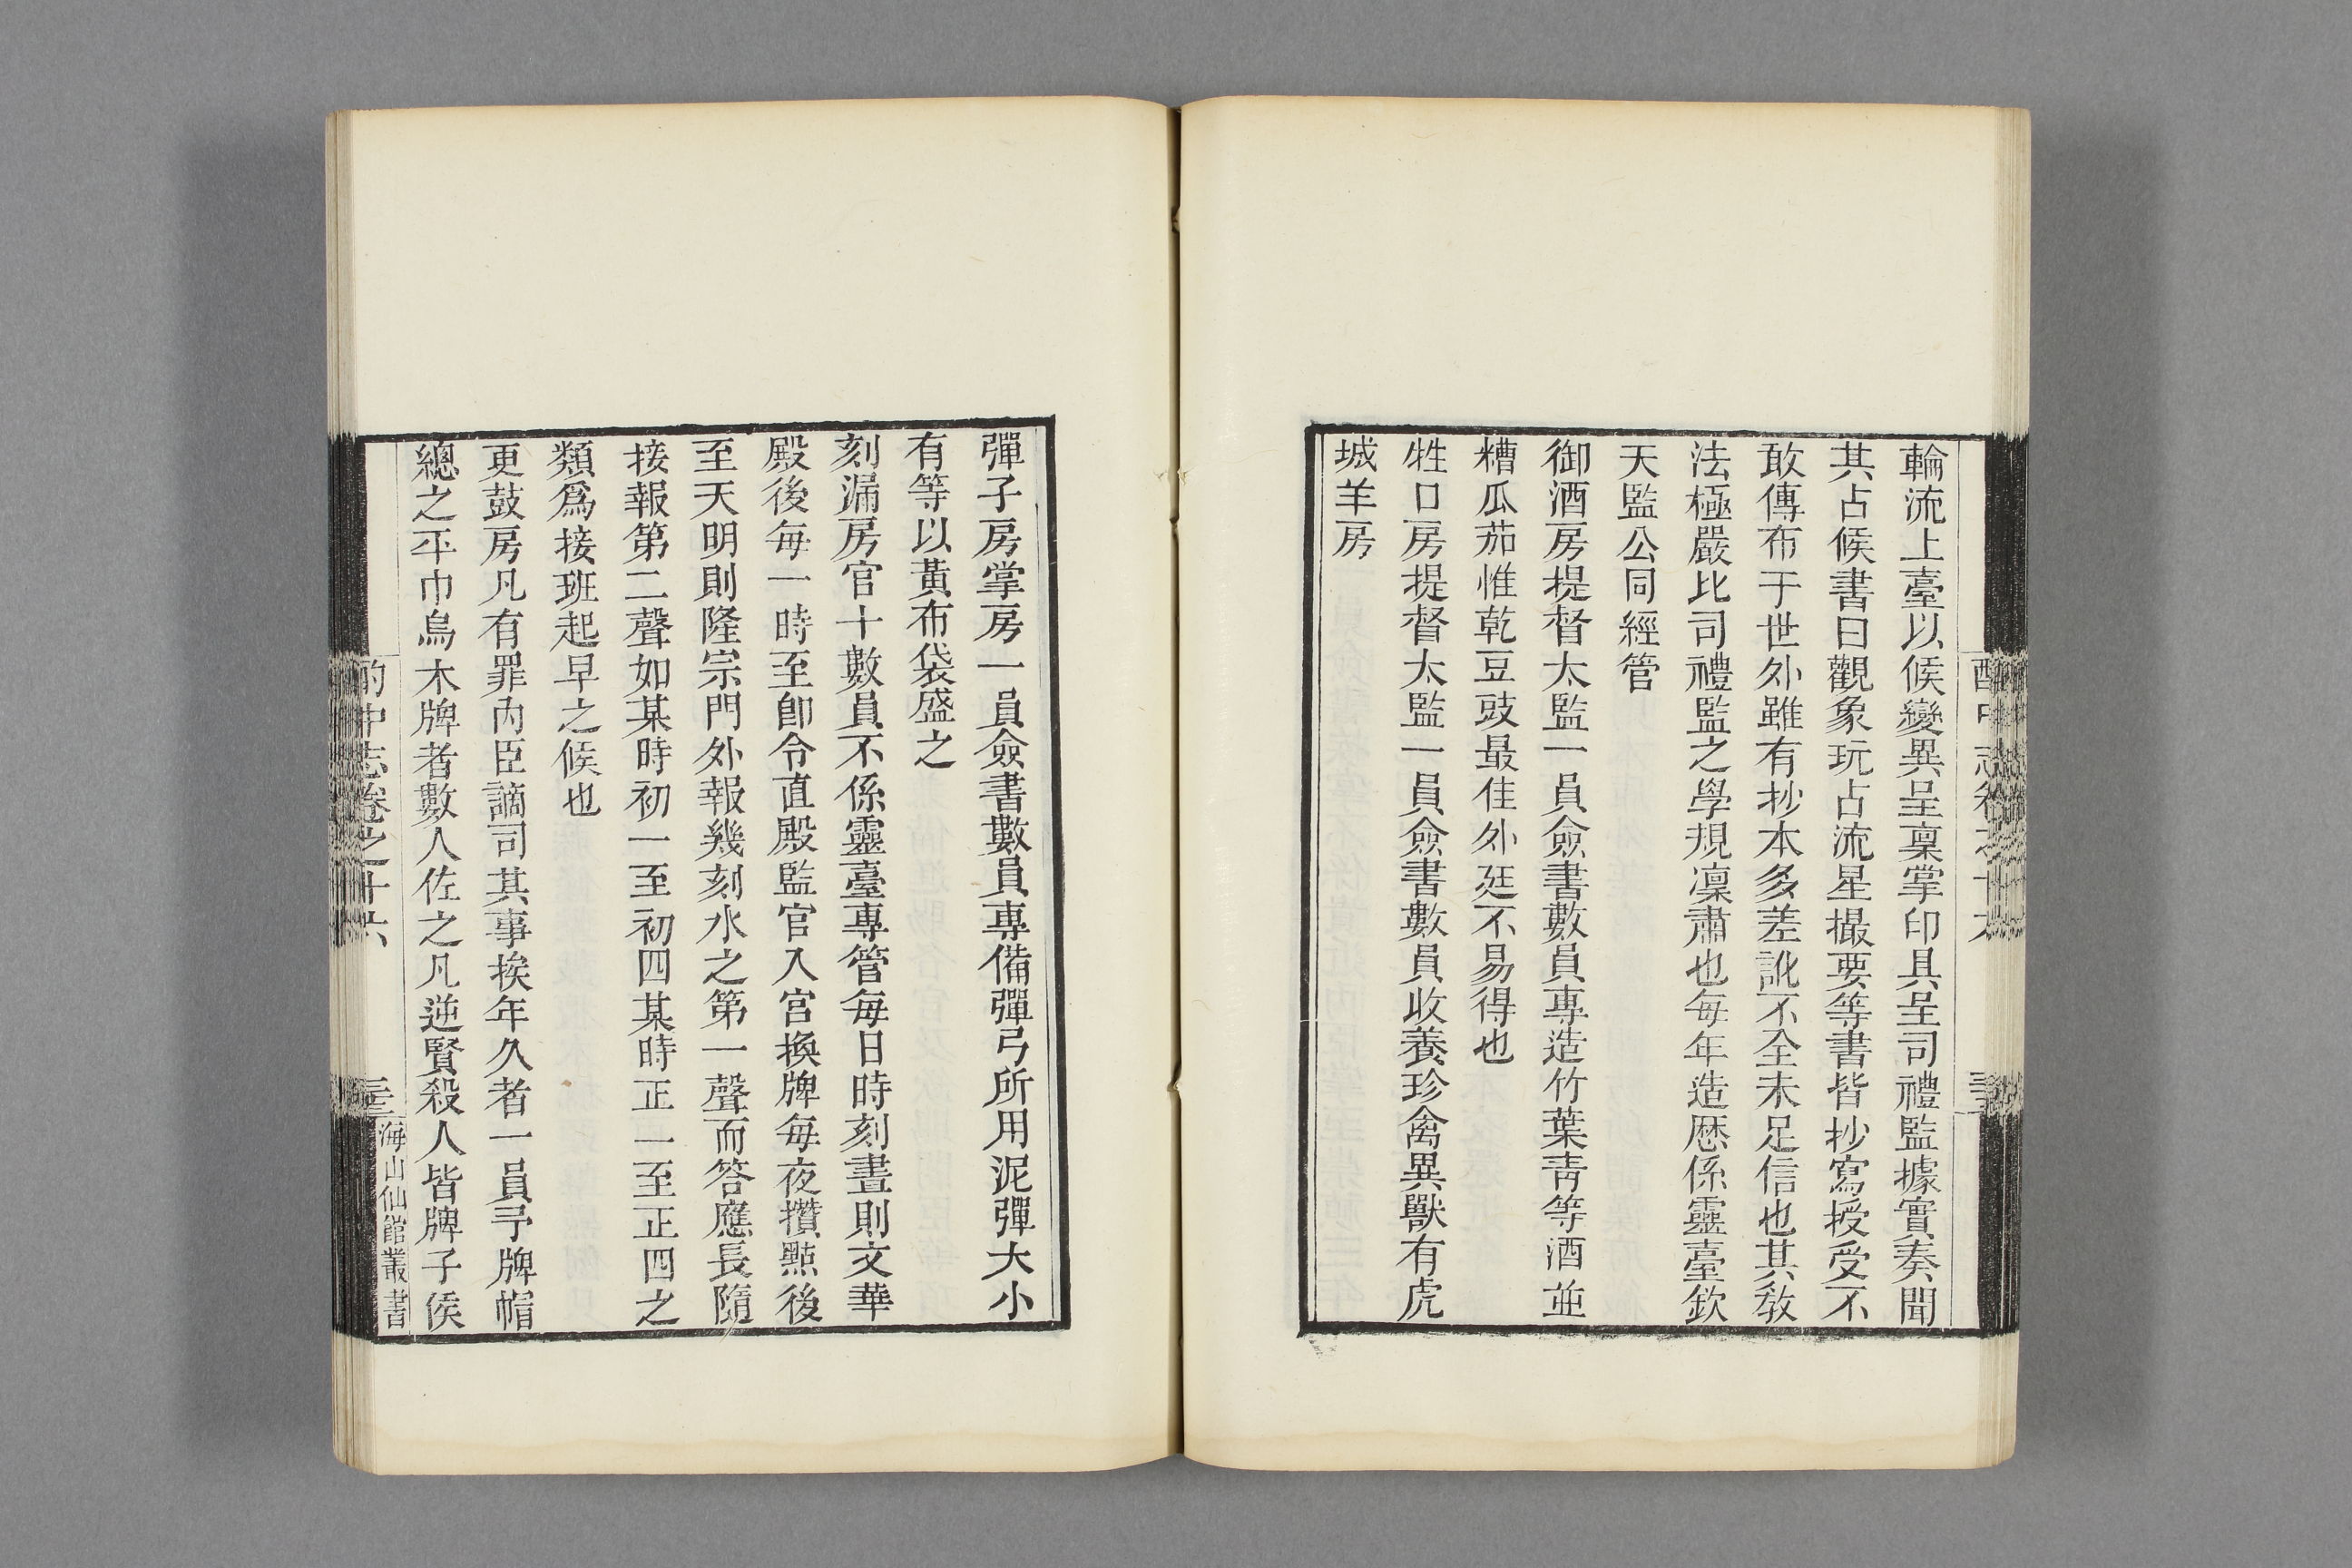 輪流上臺以候變異呈稟掌印具呈司禮監據實奏聞
其占候書曰觀象玩占流星撮要等書皆抄寫授受不
敢傳布于世外雖有抄本多差訛不全未足信也其敎
法極嚴比司禮監之學規凜肅也每年造厯係靈臺欽
天監公同經管
御酒房提督太監一員僉書數員專造竹葉靑等酒並
糟瓜茄惟乾豆豉最佳外廷不易得也
牲口房提督太監一員僉書數員收養珍禽異獸有虎
城羊房
彈子房掌房一員僉書數員專備彈弓所用泥彈大小
有等以黃布袋盛之
刻漏房官十數員不係靈臺專管每日時刻晝則文華
殿後每一時至卽令直殿監官入宮換牌每夜攢㸃後
至天明則隆宗門外報幾刻水之第一聲而答應長隨
接報第二聲如某時初一至初四某時正一至正四之
類爲接班起早之候也
更鼓房凡有罪內臣謫司其事挨年久者一員予牌帽
總之平巾烏木牌者數人佐之凡逆賢殺人皆牌子侯
酌中志卷之十六
海山仙館叢書